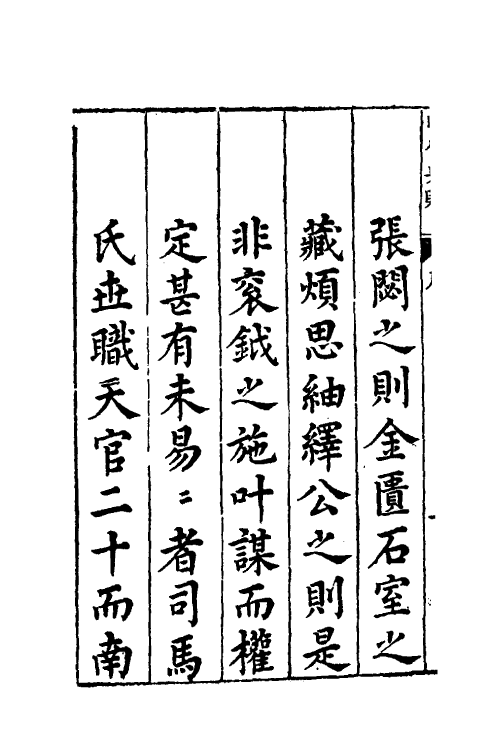 張閟之則金匱石室之
藏煩思紬繹公之則是
非衮鉞之施叶謀而權
定甚有未易〻者司馬
氏世職天官二十而南